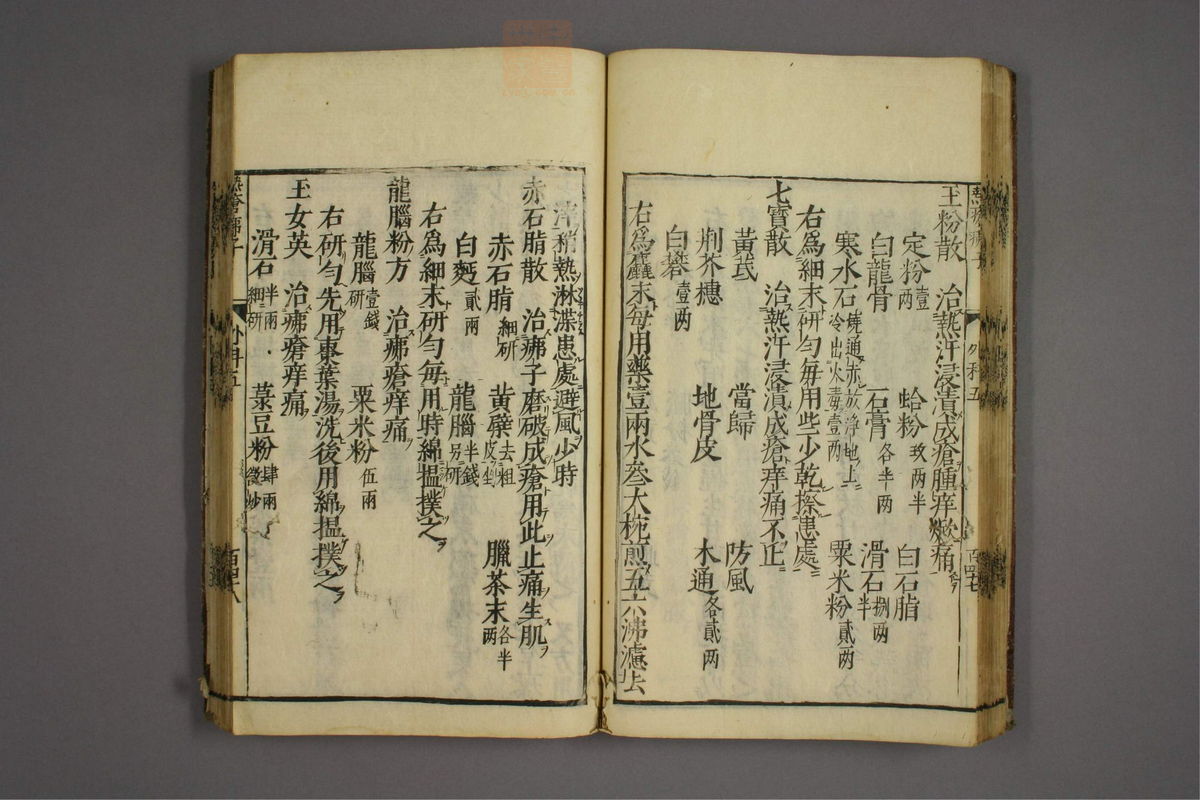 玉粉散　治熱汗浸漬成瘡腫痒焮痛
定粉壹两　蛤粉玖两半　白石脂
白龍骨　石膏各半两　滑石捌两半
寒水石燒通赤放淨地上冷出火毒壹两　粟米粉貳两
右爲細末研匀毎用些少乾擦患處
七寳散　治熱汗浸漬成瘡痒痛不止
黄芪　當歸　防風
荆芥穗　地骨皮　木通各貳两
白礬壹两
右爲麄末毎用藥壹兩水叁大椀煎五六沸濾去
滓稍熱淋渫患處避風少時
赤石脂散　治疿子磨破成瘡用此止痛生肌
赤石脂細研　黄蘗去粗皮　臘茶末各半两
白麪貳兩　龍腦半錢另研
右爲細末研匀毎用時綿揾撲之
龍腦粉方　治疿瘡痒痛
龍腦壹錢研　粟米粉伍兩
右研匀先用棗葉湯洗後用綿揾撲之
玉女英　治疿瘡痒痛
滑石半兩細研　菉豆粉肆兩微炒
外科五
百四十七
外科五
百四十八